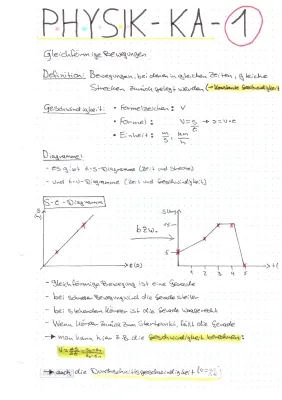 PHYSIK-KA-1
Gleichförmige Bewegungen
Definition: Bewegungen, bei denen in gleichen Zeiten, gleiche
Strecken zurück gelegt werden (→ konstante Geschwindigkeit
Geschwindigkeit: • Formelzeichen: V
• Formel: V = s/t → s = v·t
• Einheit: m/s, km/h
Diagramme:
- es gibt t-s-Diagramme (Zeit und Strecke)
- und t-v-Diagramme (Zeit und Geschwindigkeit)
s-t-Diagramm
bzw.
1 2 3 4 5
- gleichförmige Bewegung ist eine Gerade
- bei schneller Bewegung wird die Gerade steiler
- bei stehenden Körper ist die Gerade waagerecht
- Wenn Körper zurück zum Startpunkt, fällt die Gerade
→ man kann hier z.B die Geschwindigkeit berechnen:
→ auch die Durchschnittsgeschwindigkeit